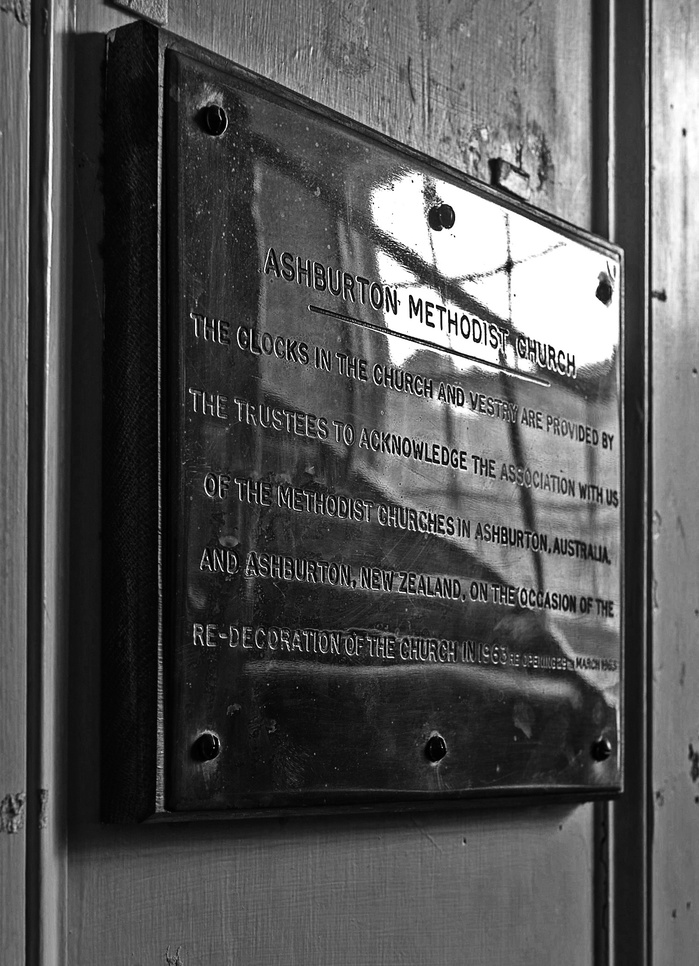 ASHBURTON METHODIST CHURCH
THE CLOCKS IN THE CHURCH AND VESTRY ARE PROVIDED BY
THE TRUSTEES TO ACKNOWLEDGE THE ASSOCIATION WITH US
OF THE METHODIST CHURCHES IN ASHBURTON, AUSTRALIA,
AND ASHBURTON, NEW ZEALAND, ON THE OCCASION OF THE
RE-DECORATION OF THE CHURCH IN 1963 RE OPENING MARCH 1963